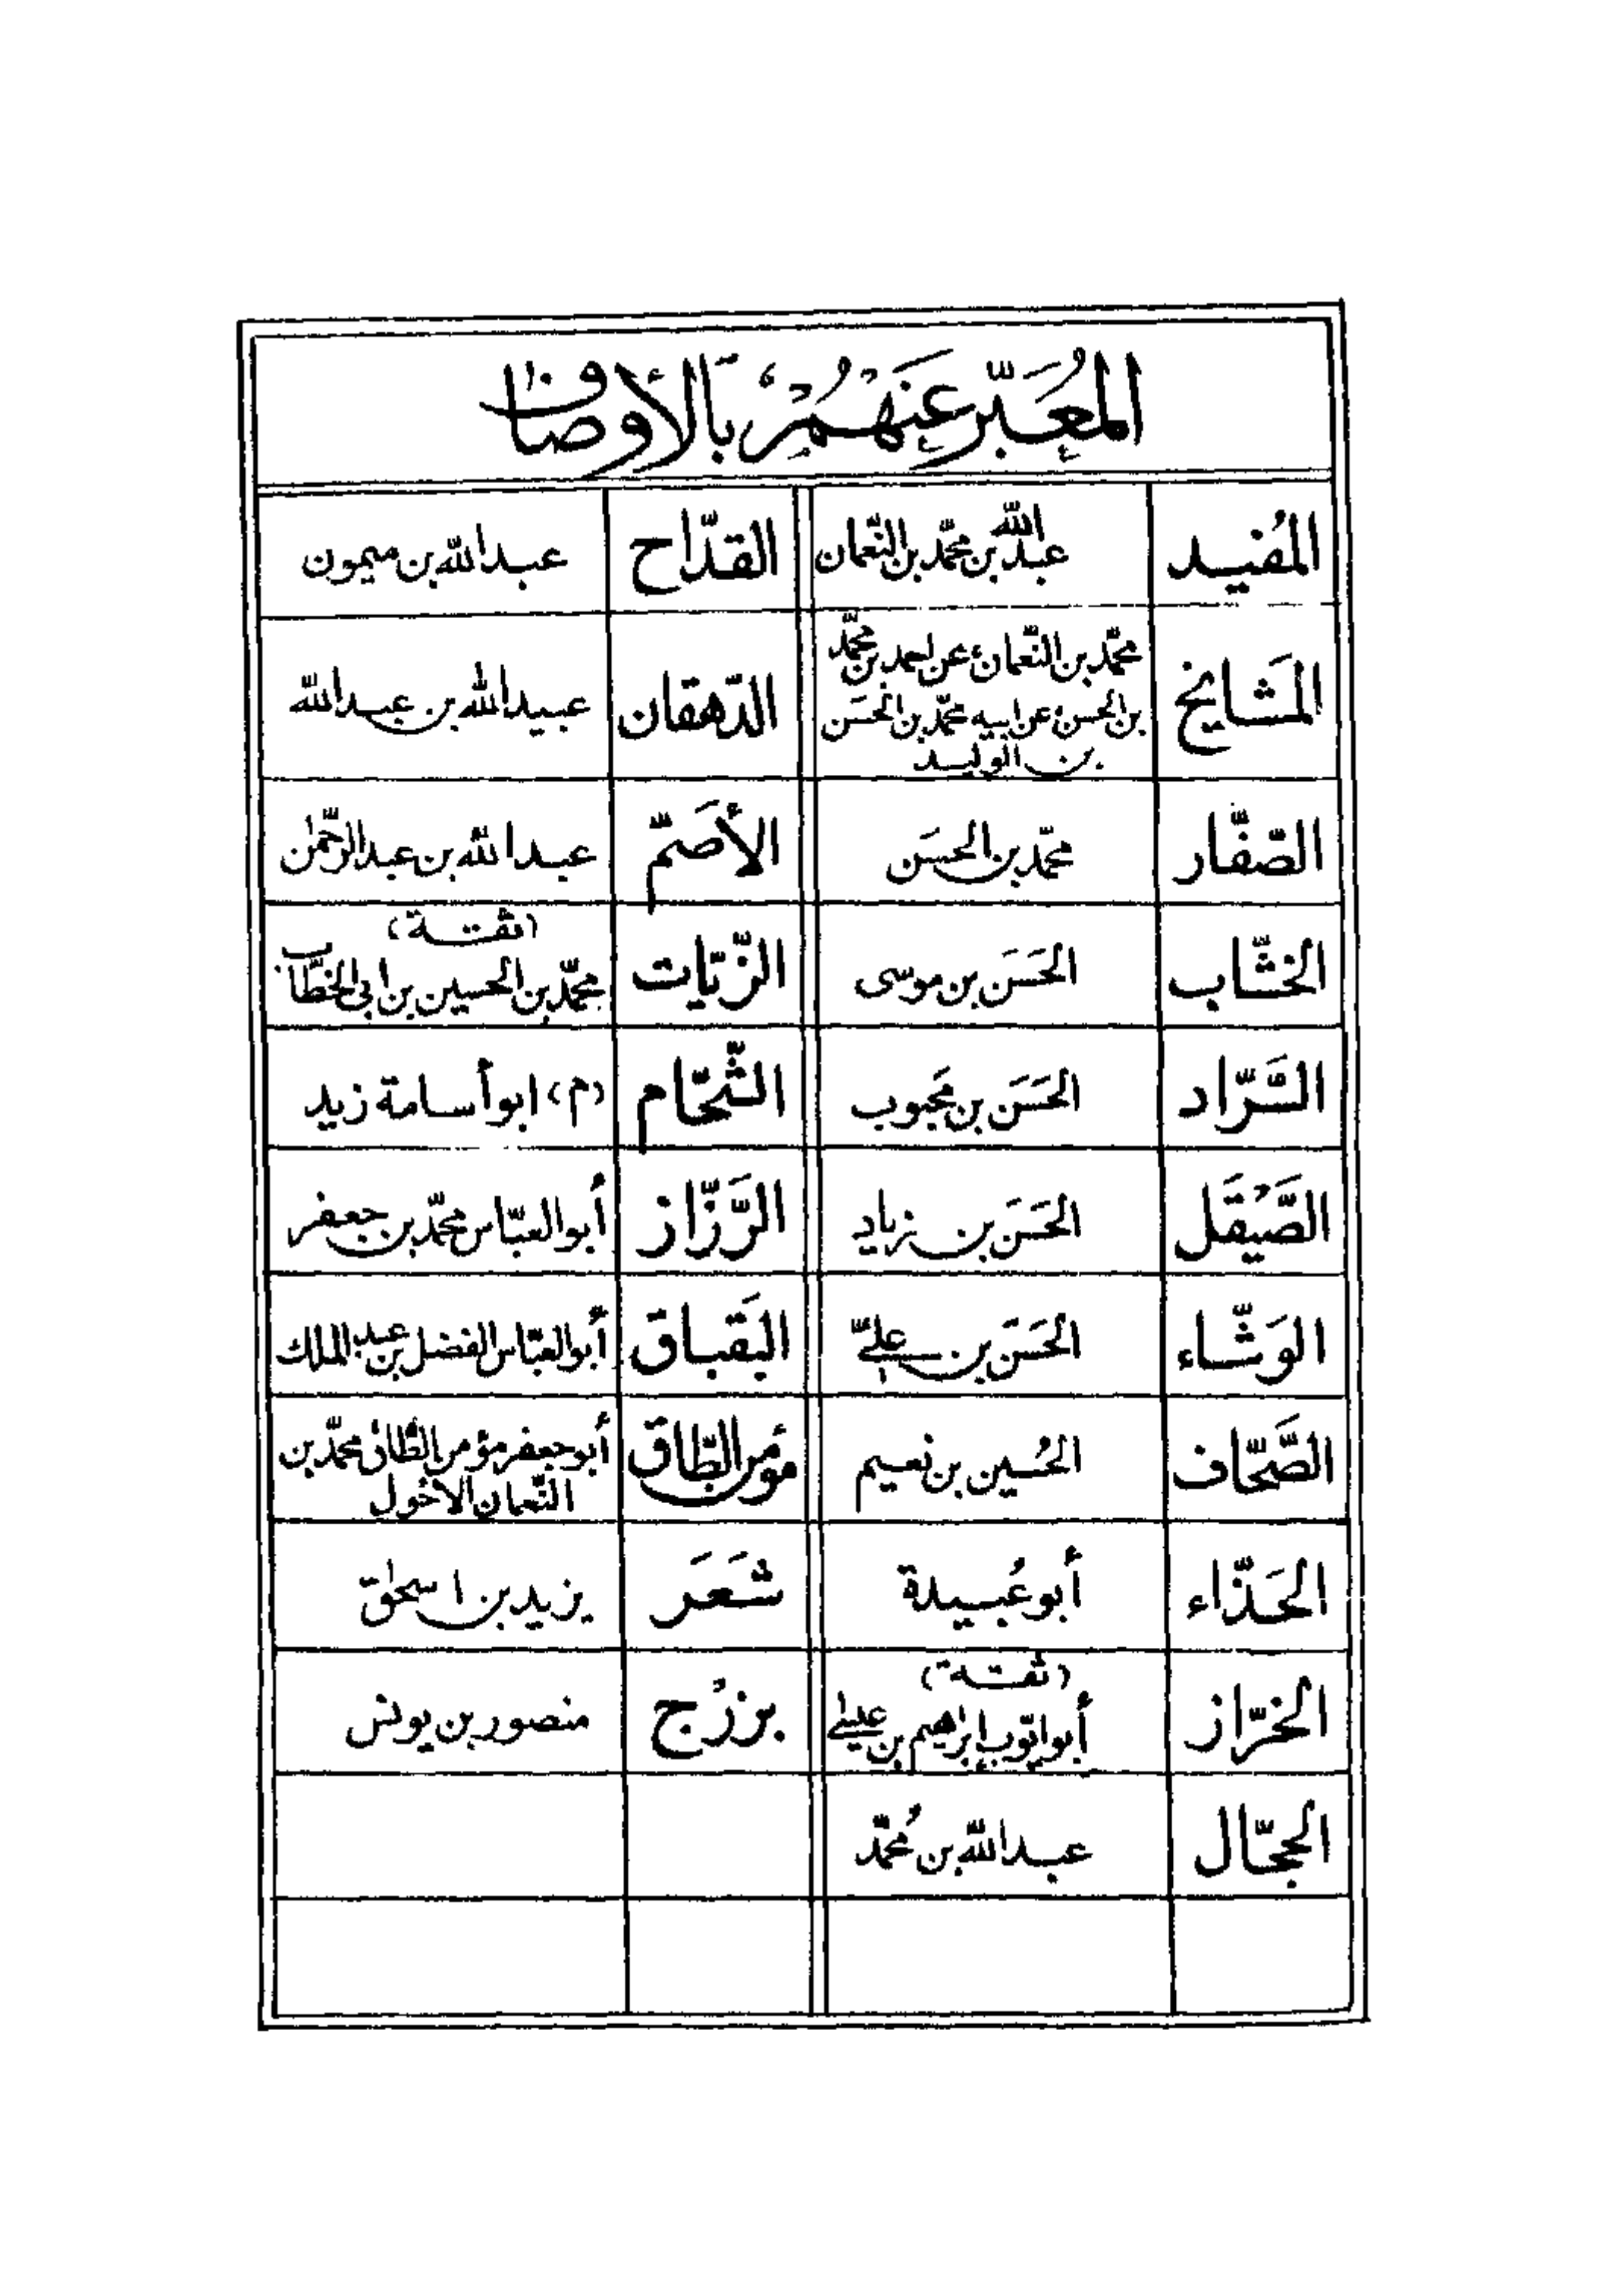 المُعَبَّر عَنهُمْ بَالأَوصَاف
المُفيد
عبدالله بن محمّد بن النّعمان
القدّاح
عبدالله بن ميمون
المَشَايخ
محمّد بن النّعمان، عن احمد بن محمّد
بن الحسن، عن ابيه محمّد بن الحَسَن
بن الوليد
الدّهقان
عبيدالله بن عبدالله
الصّفّار
محمّد بن الحسَن
الأصَمّ
عبدالله بن عبدالرّحمٰن
الخشّاب
الحَسَن بن موسى
الزّيّات
(ثقة)
محمّد بن الحسين بن ابى الخطّاب
السَّرّاد
الحَسَن بن مَحبوب
الشّحّام
(م) ابوأسامة زيد
الصَّيْقَل
الحَسَن بن زياد
الرَّزّاز
أبوالعبّاس محمّد بن جعفر
الوَشّاء
الحَسَن بن عليّ
البَقباق
أبوالعبّاس الفضل بن عبدالملك
الصَّحّاف
الحُسين بن نعيم
مؤمن الطّاق
أبوجعفر مؤمن الطّاق محمّد بن
النّعمان الأحول
الحَذّاء
أبوعُبيدة
شَعَر
يزيد بن اسحٰق
الخرّاز
(ثقة)
أبوايّوب إبراهيم بن عيسٰى
بزرْج
منصور بن يونس
الحجّال
عبدالله بن مُحمّد